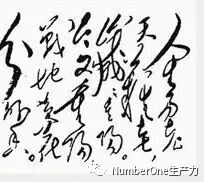 人生易老
天難老
歲歲重陽。
今又重陽
戰地黃花
分外香。
NumberOne生产力